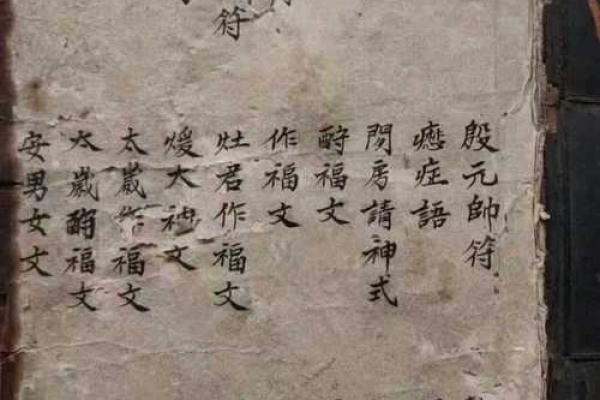 符
殷元帥符
症語
房請神式
酧福文
作福文
灶君作福文
煖大神文
太歲作福文
太歲酧福文
安男女文